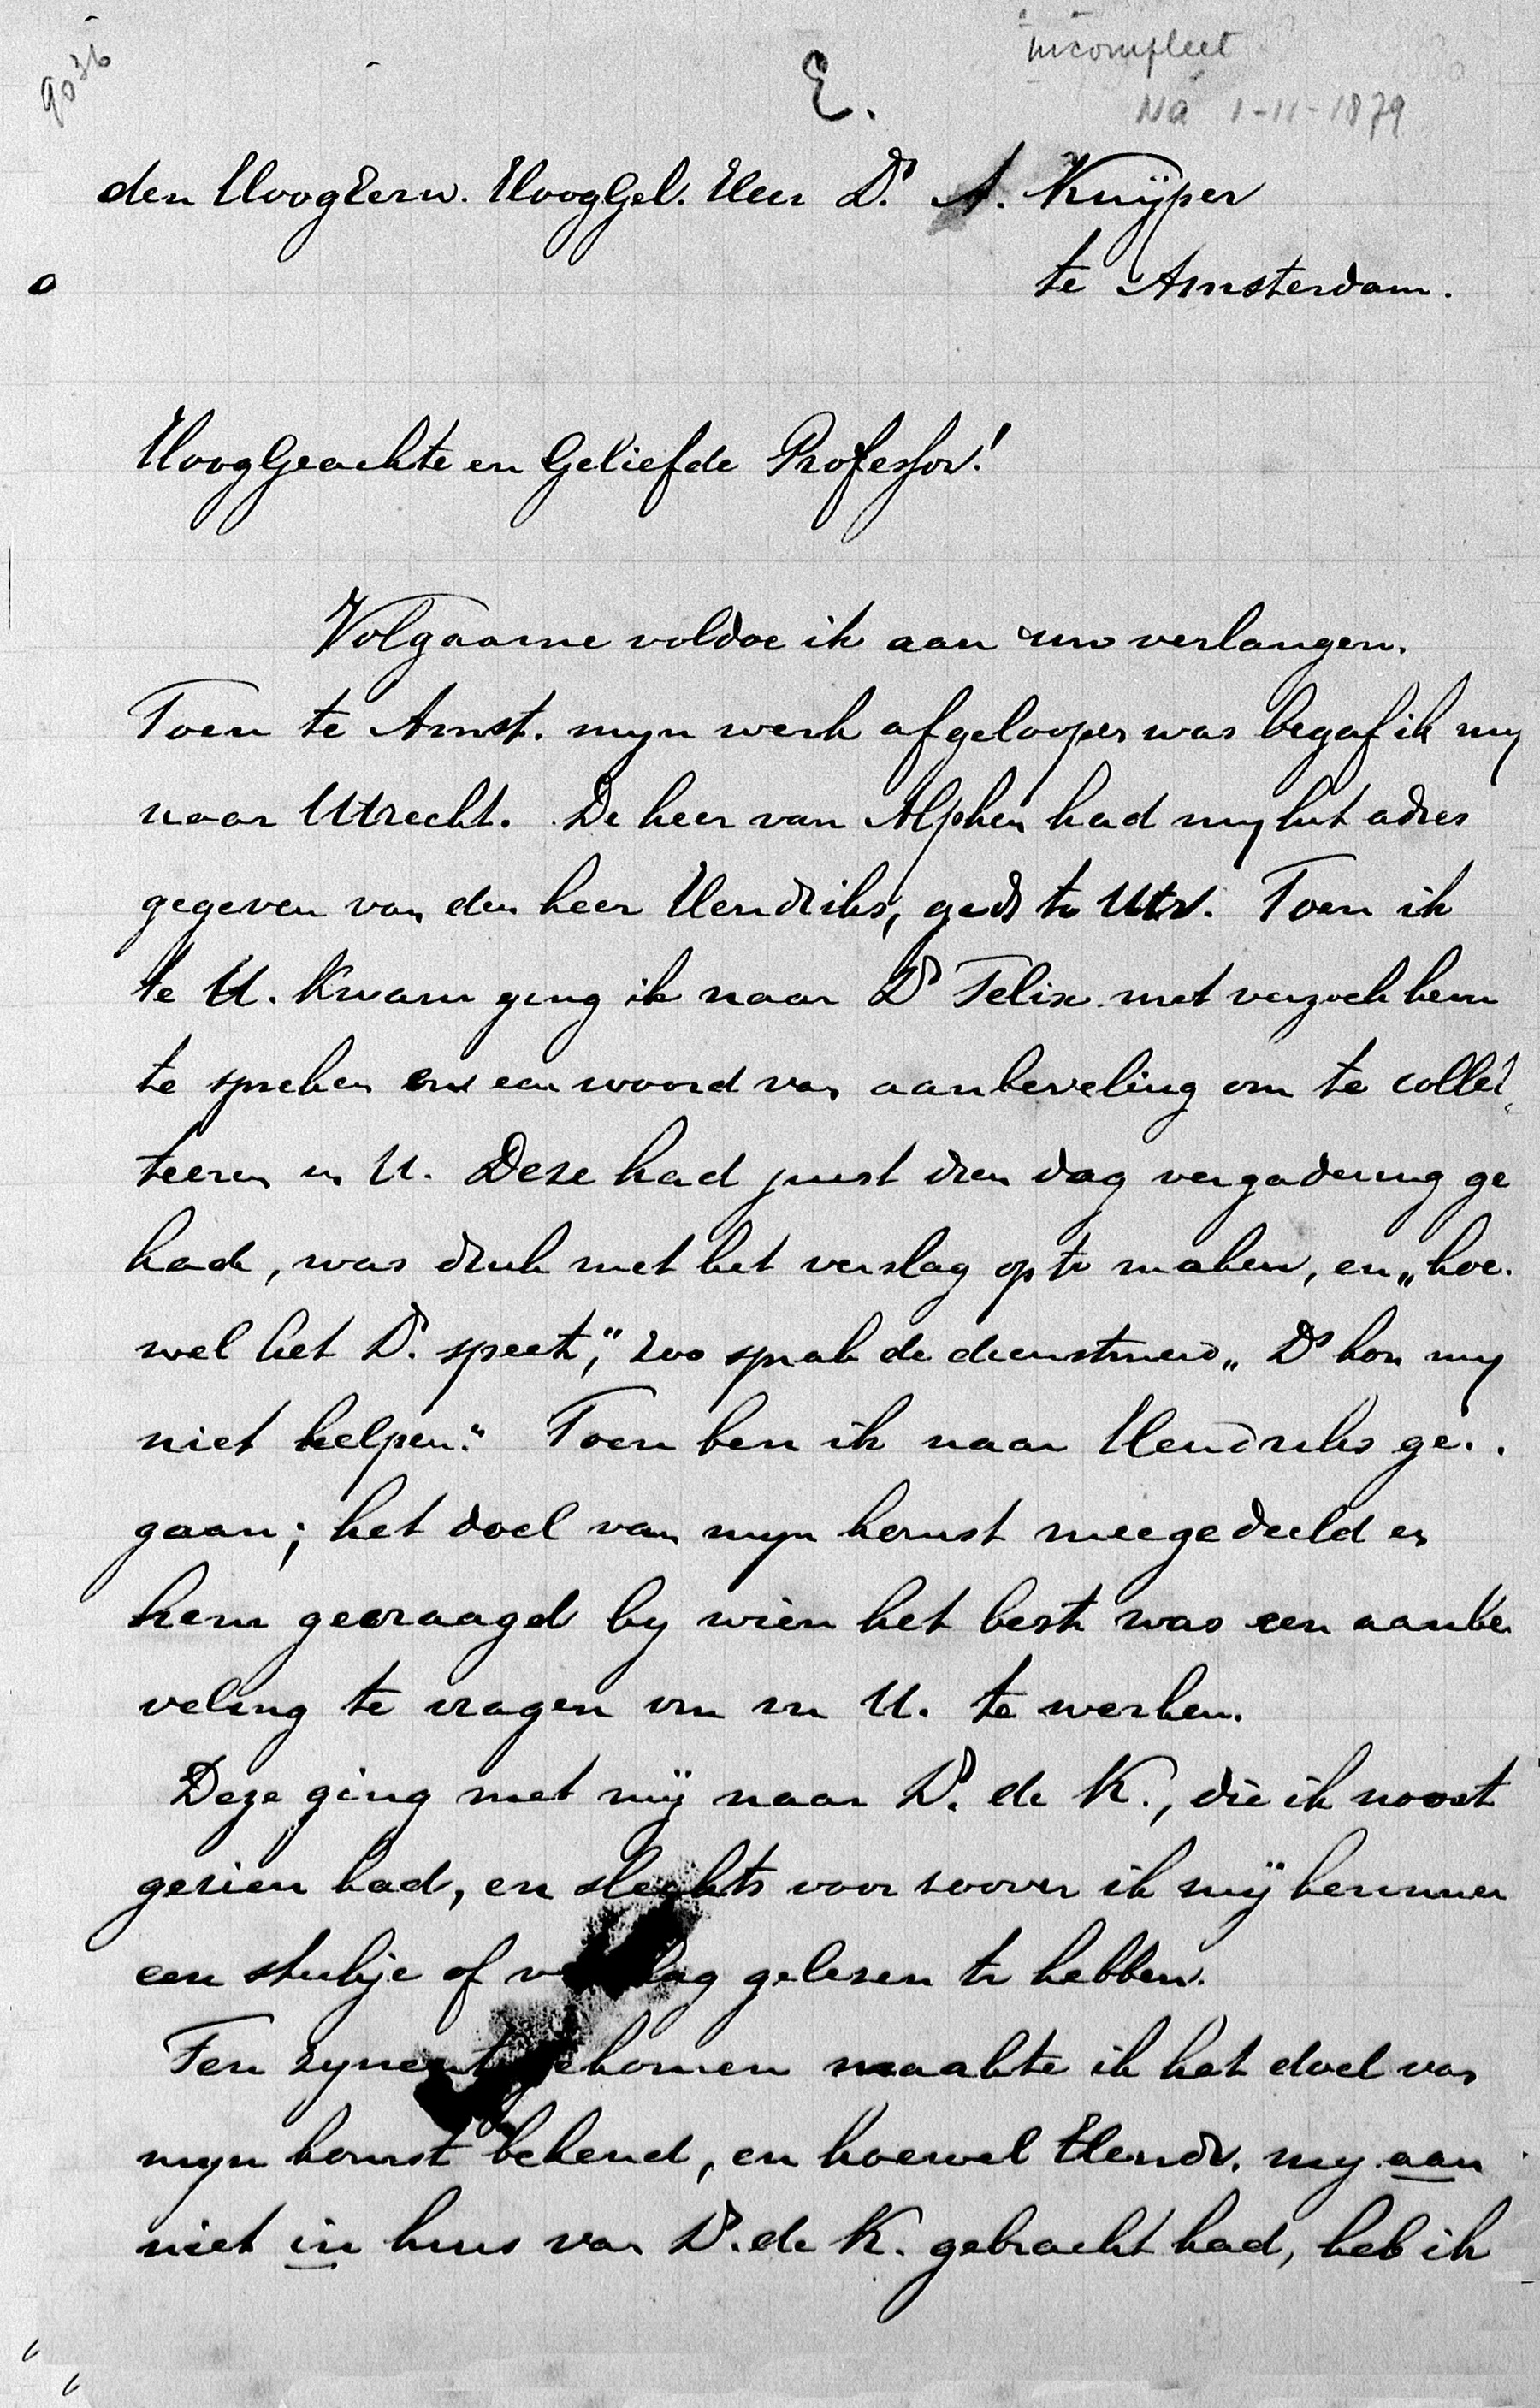 9036
incompleet
E.
Na 1-11-1879
den HoogEerw. HoogGel. Heer Dr. A. Kuÿper
te Amsterdam.
HoogGeachte en Geliefde Professor!
Volgaarne voldoe ik aan uw verlangen.
Toen te Amst. myn werk afgeloopen was begaf ik my
naar Utrecht. De heer van Alphen had my het adres
gegeven van den heer Hendriks, te Utr. Toen ik
te U. kwam ging ik naar Ds Felix met verzoek hem
te spreken en een woord van aanbeveling om te collec
teeren in U. Deze had juist dien dag vergadering ge
had, was druk met het verslag op te maken, en „hoe.
wel het Ds. speet," zoo sprak de dienstmeid „Ds kon my
niet helpen." Toen ben ik naar Hendriks ge..
gaan; het doel van myn komst meegedeeld en
hem gevraagd by wien het best was een aanbe
veling te vragen om in U. te werken.
Deze ging met mij naar Ds. de K., die ik nooit
gezien had, en slechts voor zoover ik mij herinner
een stukje of verslag gelezen te hebben.
Ten zynent gekomen maakte ik het doel van
myn komst bekend, en hoewel Hendr. my aan
niet in huis van Ds. de K. gebracht had, heb ik